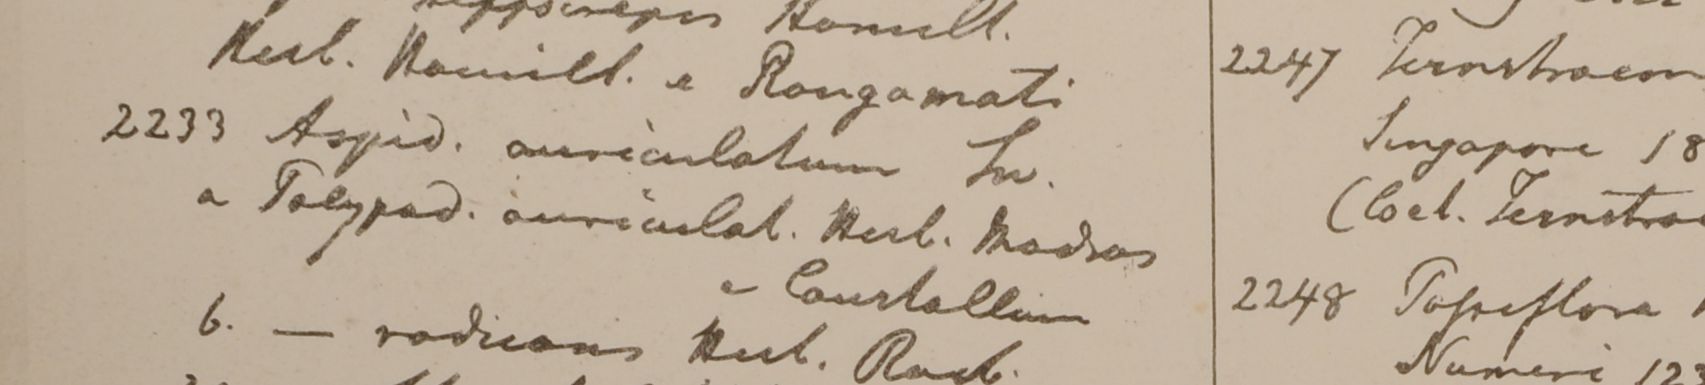 Hamilt.
Herb. Hamilt. e Rongamati
2233 Aspid. auriculatum Sw.
a Polypod. auriculat. Herb. Madras
e Courtallum
b. — radicans Herb. Roxb.
2247 Ternstroem
Singapore 18
(Coel. Ternstro
2248 Passiflora
Numeri 12